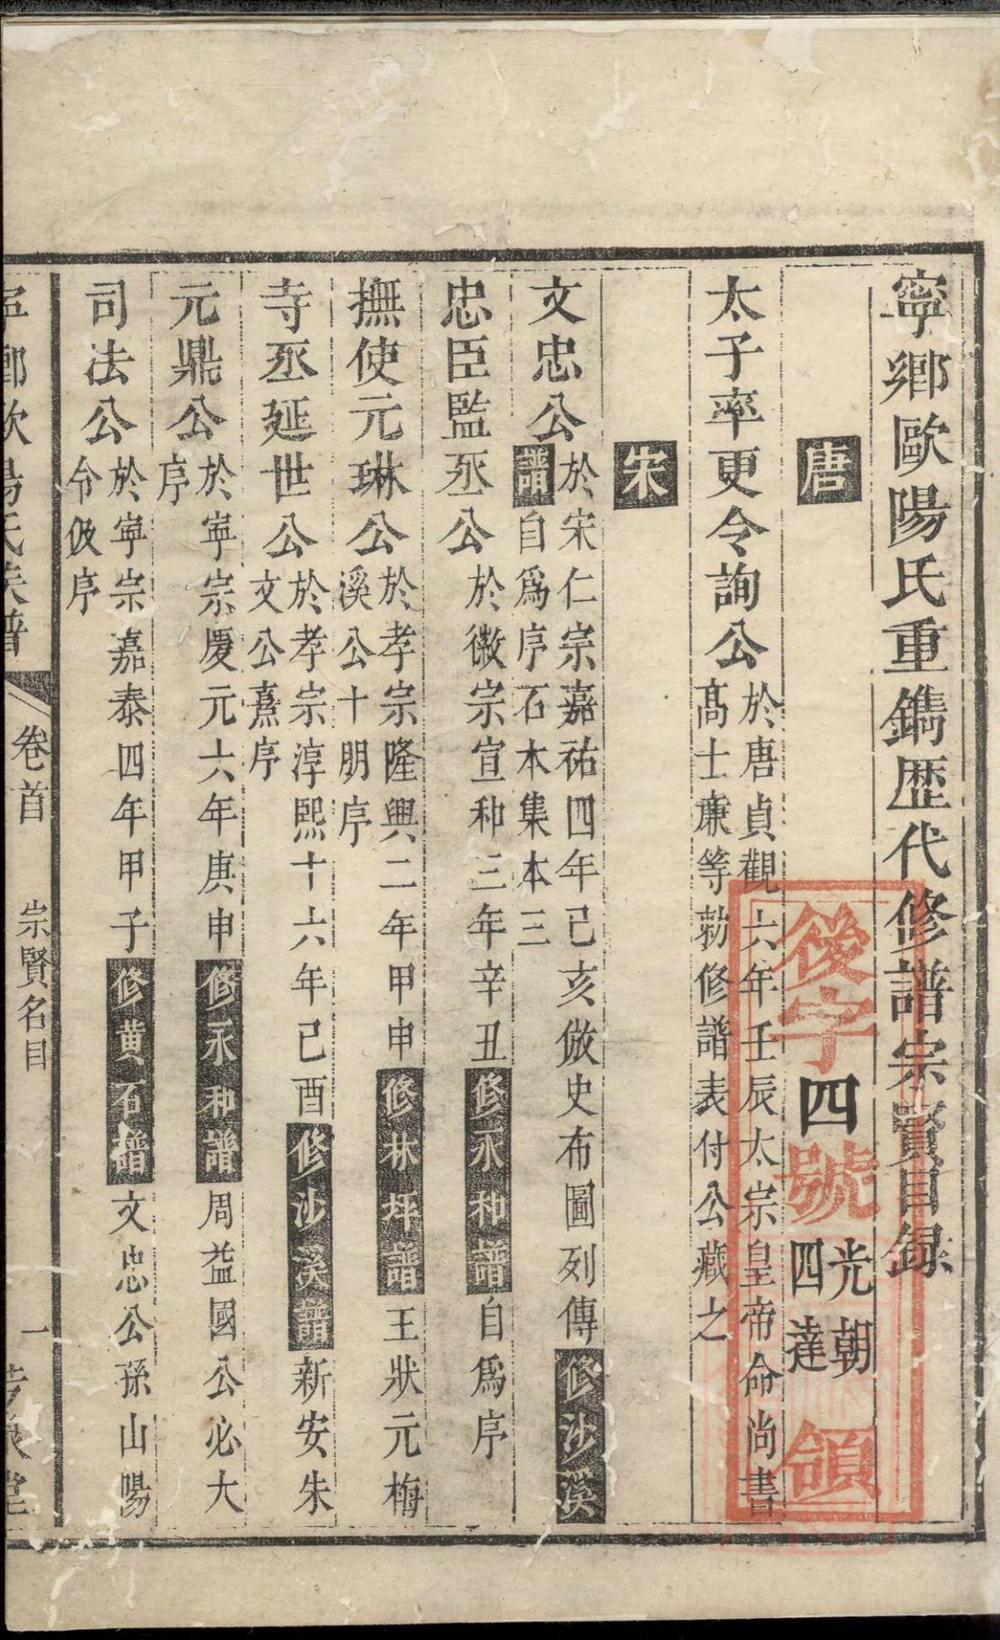 寧鄉歐陽氏重鐫歴代修譜宗賢目録
唐
後字四號 光朝 四達 領
太子率更令詢公於唐貞觀六年壬辰太宗皇帝命尚書
高士廉等勅修譜表付公藏之
宋
文忠公於宋仁宗嘉祐四年己亥倣史布圖列傳修沙溪
譜自爲序石本集本三
忠臣監丞公於徽宗宣和三年辛丑修永和譜自爲序
撫使元琳公於孝宗隆興二年甲申修林坪譜王狀元梅
溪公十朋序
寺丞延世公於孝宗淳熙十六年己酉修沙溪譜新安朱
文公熹序
元鼎公於寧宗慶元六年庚申修永和譜周益國公必大
序
司法公於寧宗嘉泰四年甲子修黄石譜文忠公孫山陽
令伋序
寧鄉歐陽氏族譜 卷首 宗賢名目 一